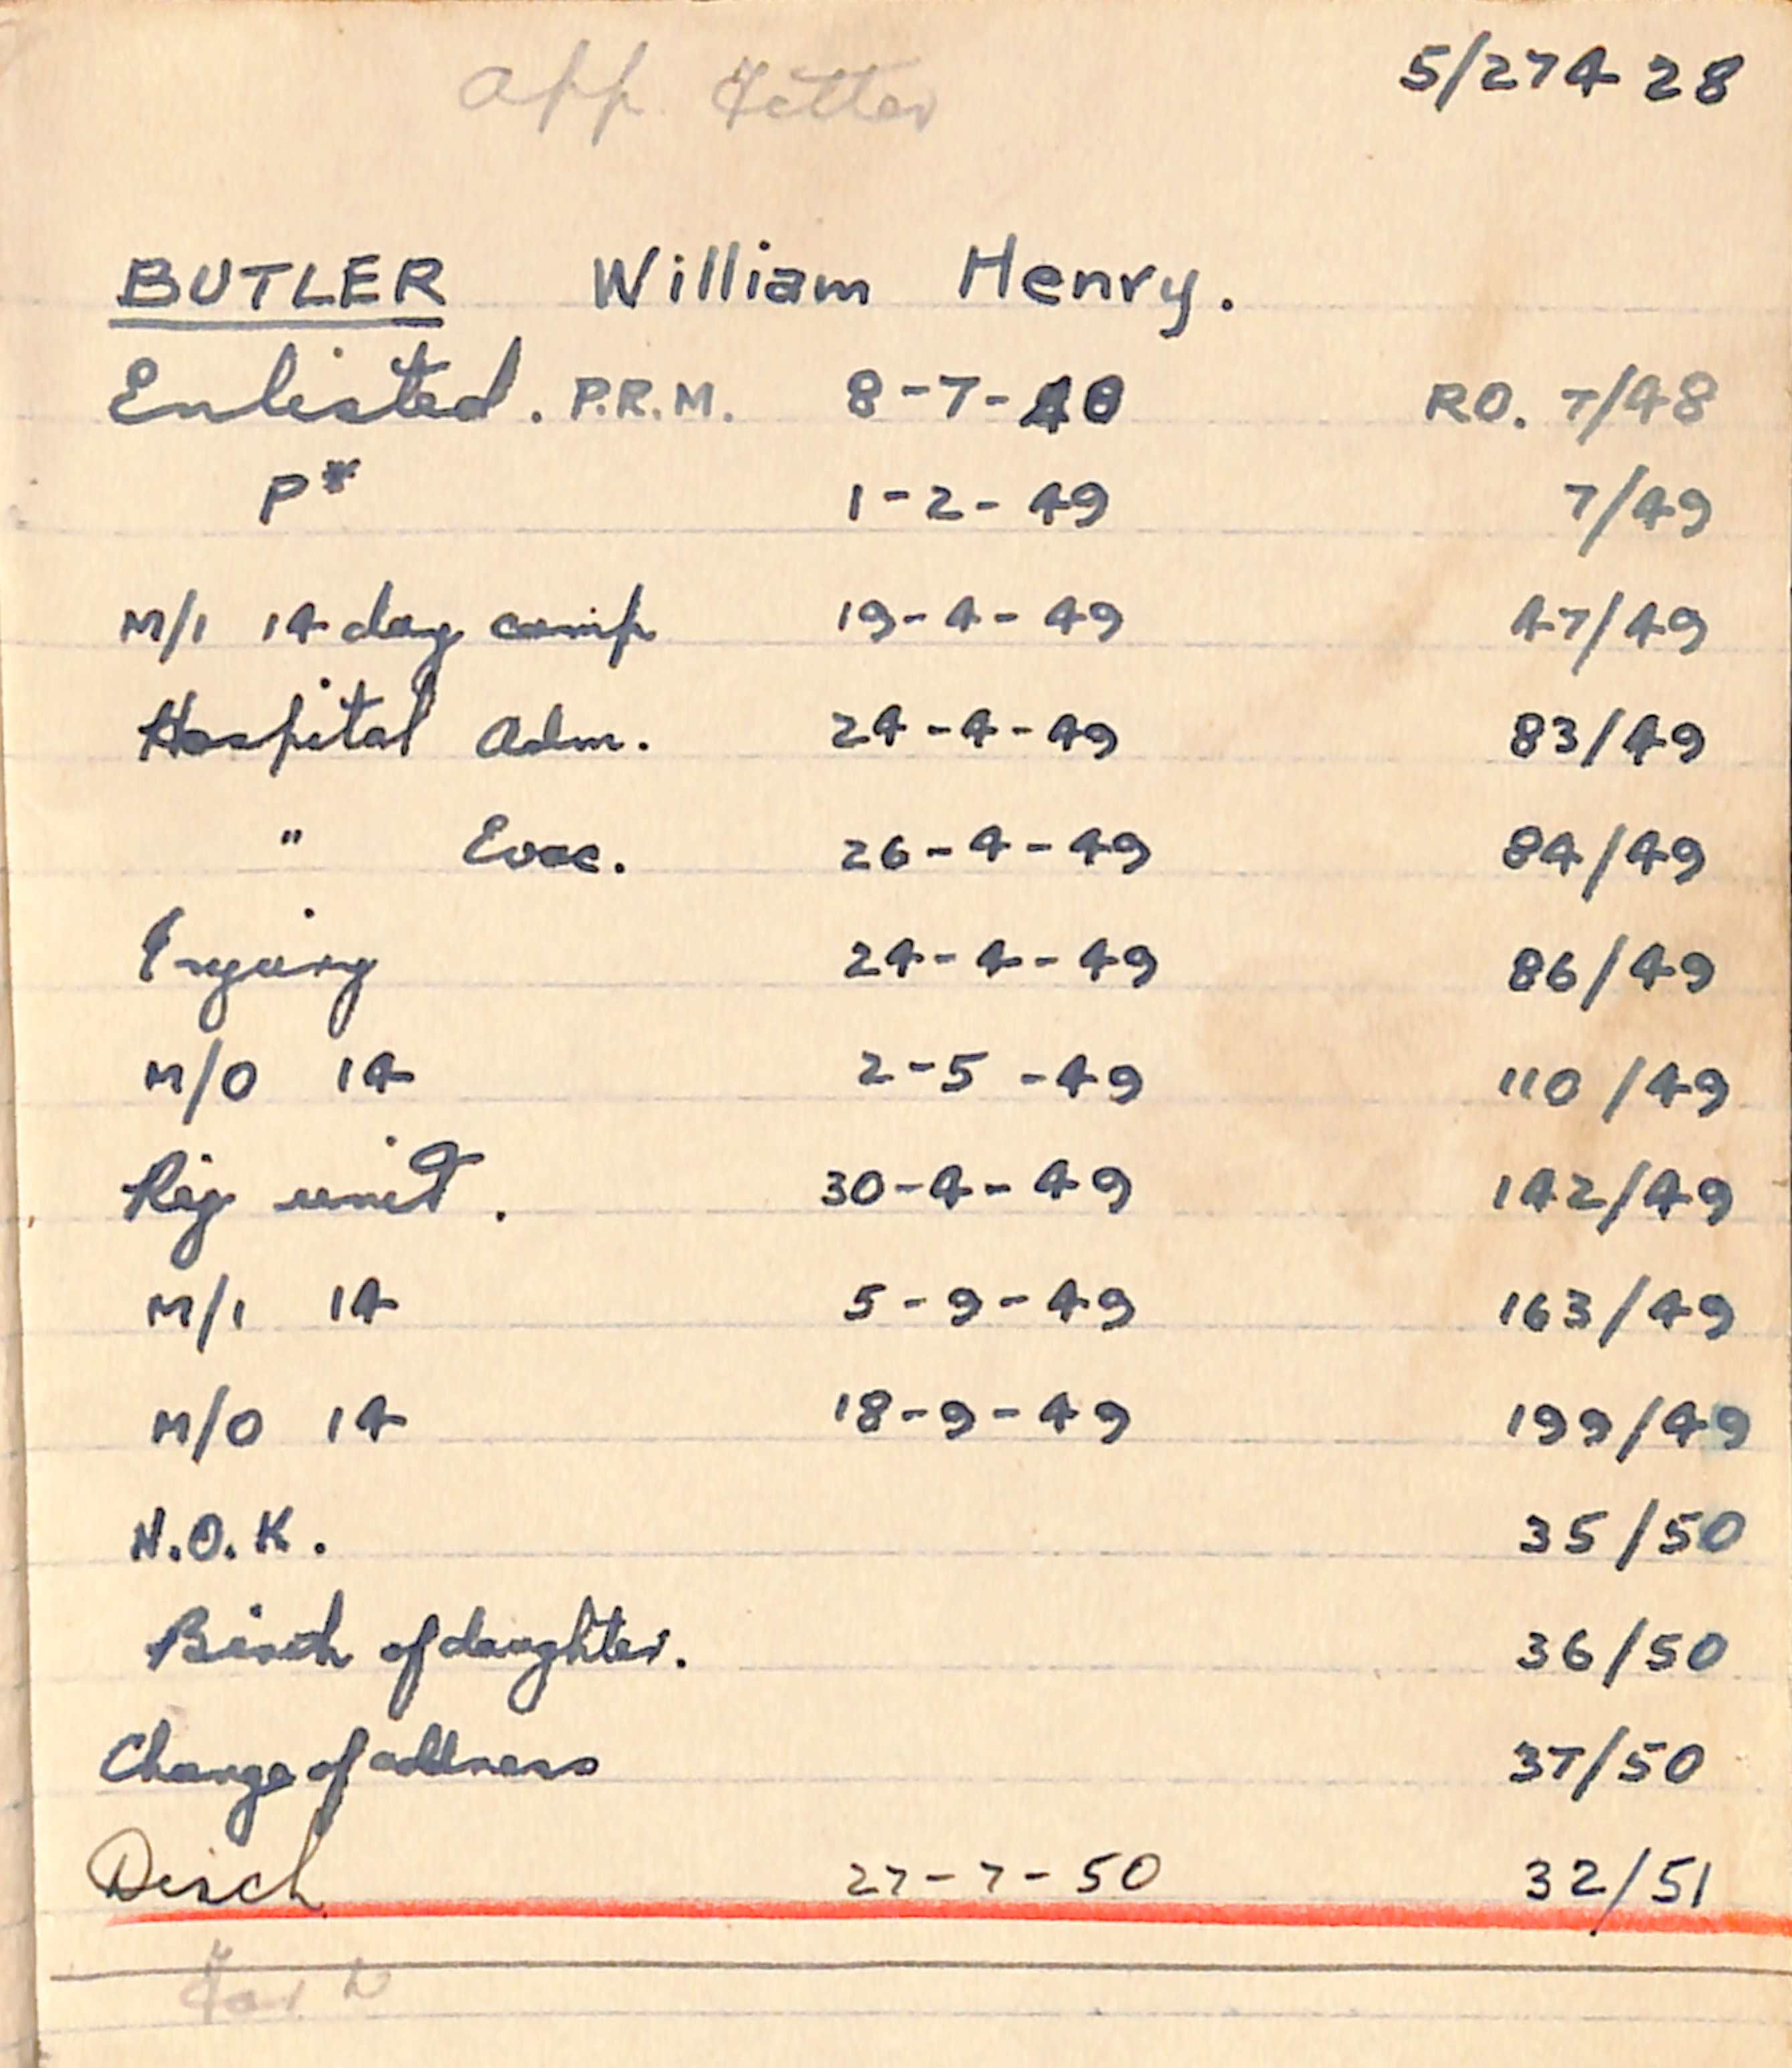 App. Fitter 5/27428
BUTLER William Henry.
Enlisted. P.R.M. 8-7-48 RO. 7/48
P* 1-2-49 7/49
M/I 14 day camp 19-4-49 47/49
Hospital Adm. 24-4-49 83/49
" Evac. 26-4-49 84/49
Injury 24-4-49 86/49
M/O 14 2-5-49 110/49
Reg unit. 30-4-49 142/49
M/I 14 5-9-49 163/49
M/O 14 18-9-49 199/49
N.O.K. 35/50
Birth of daughter. 36/50
Change of address 37/50
Disch 27-7-50 32/51